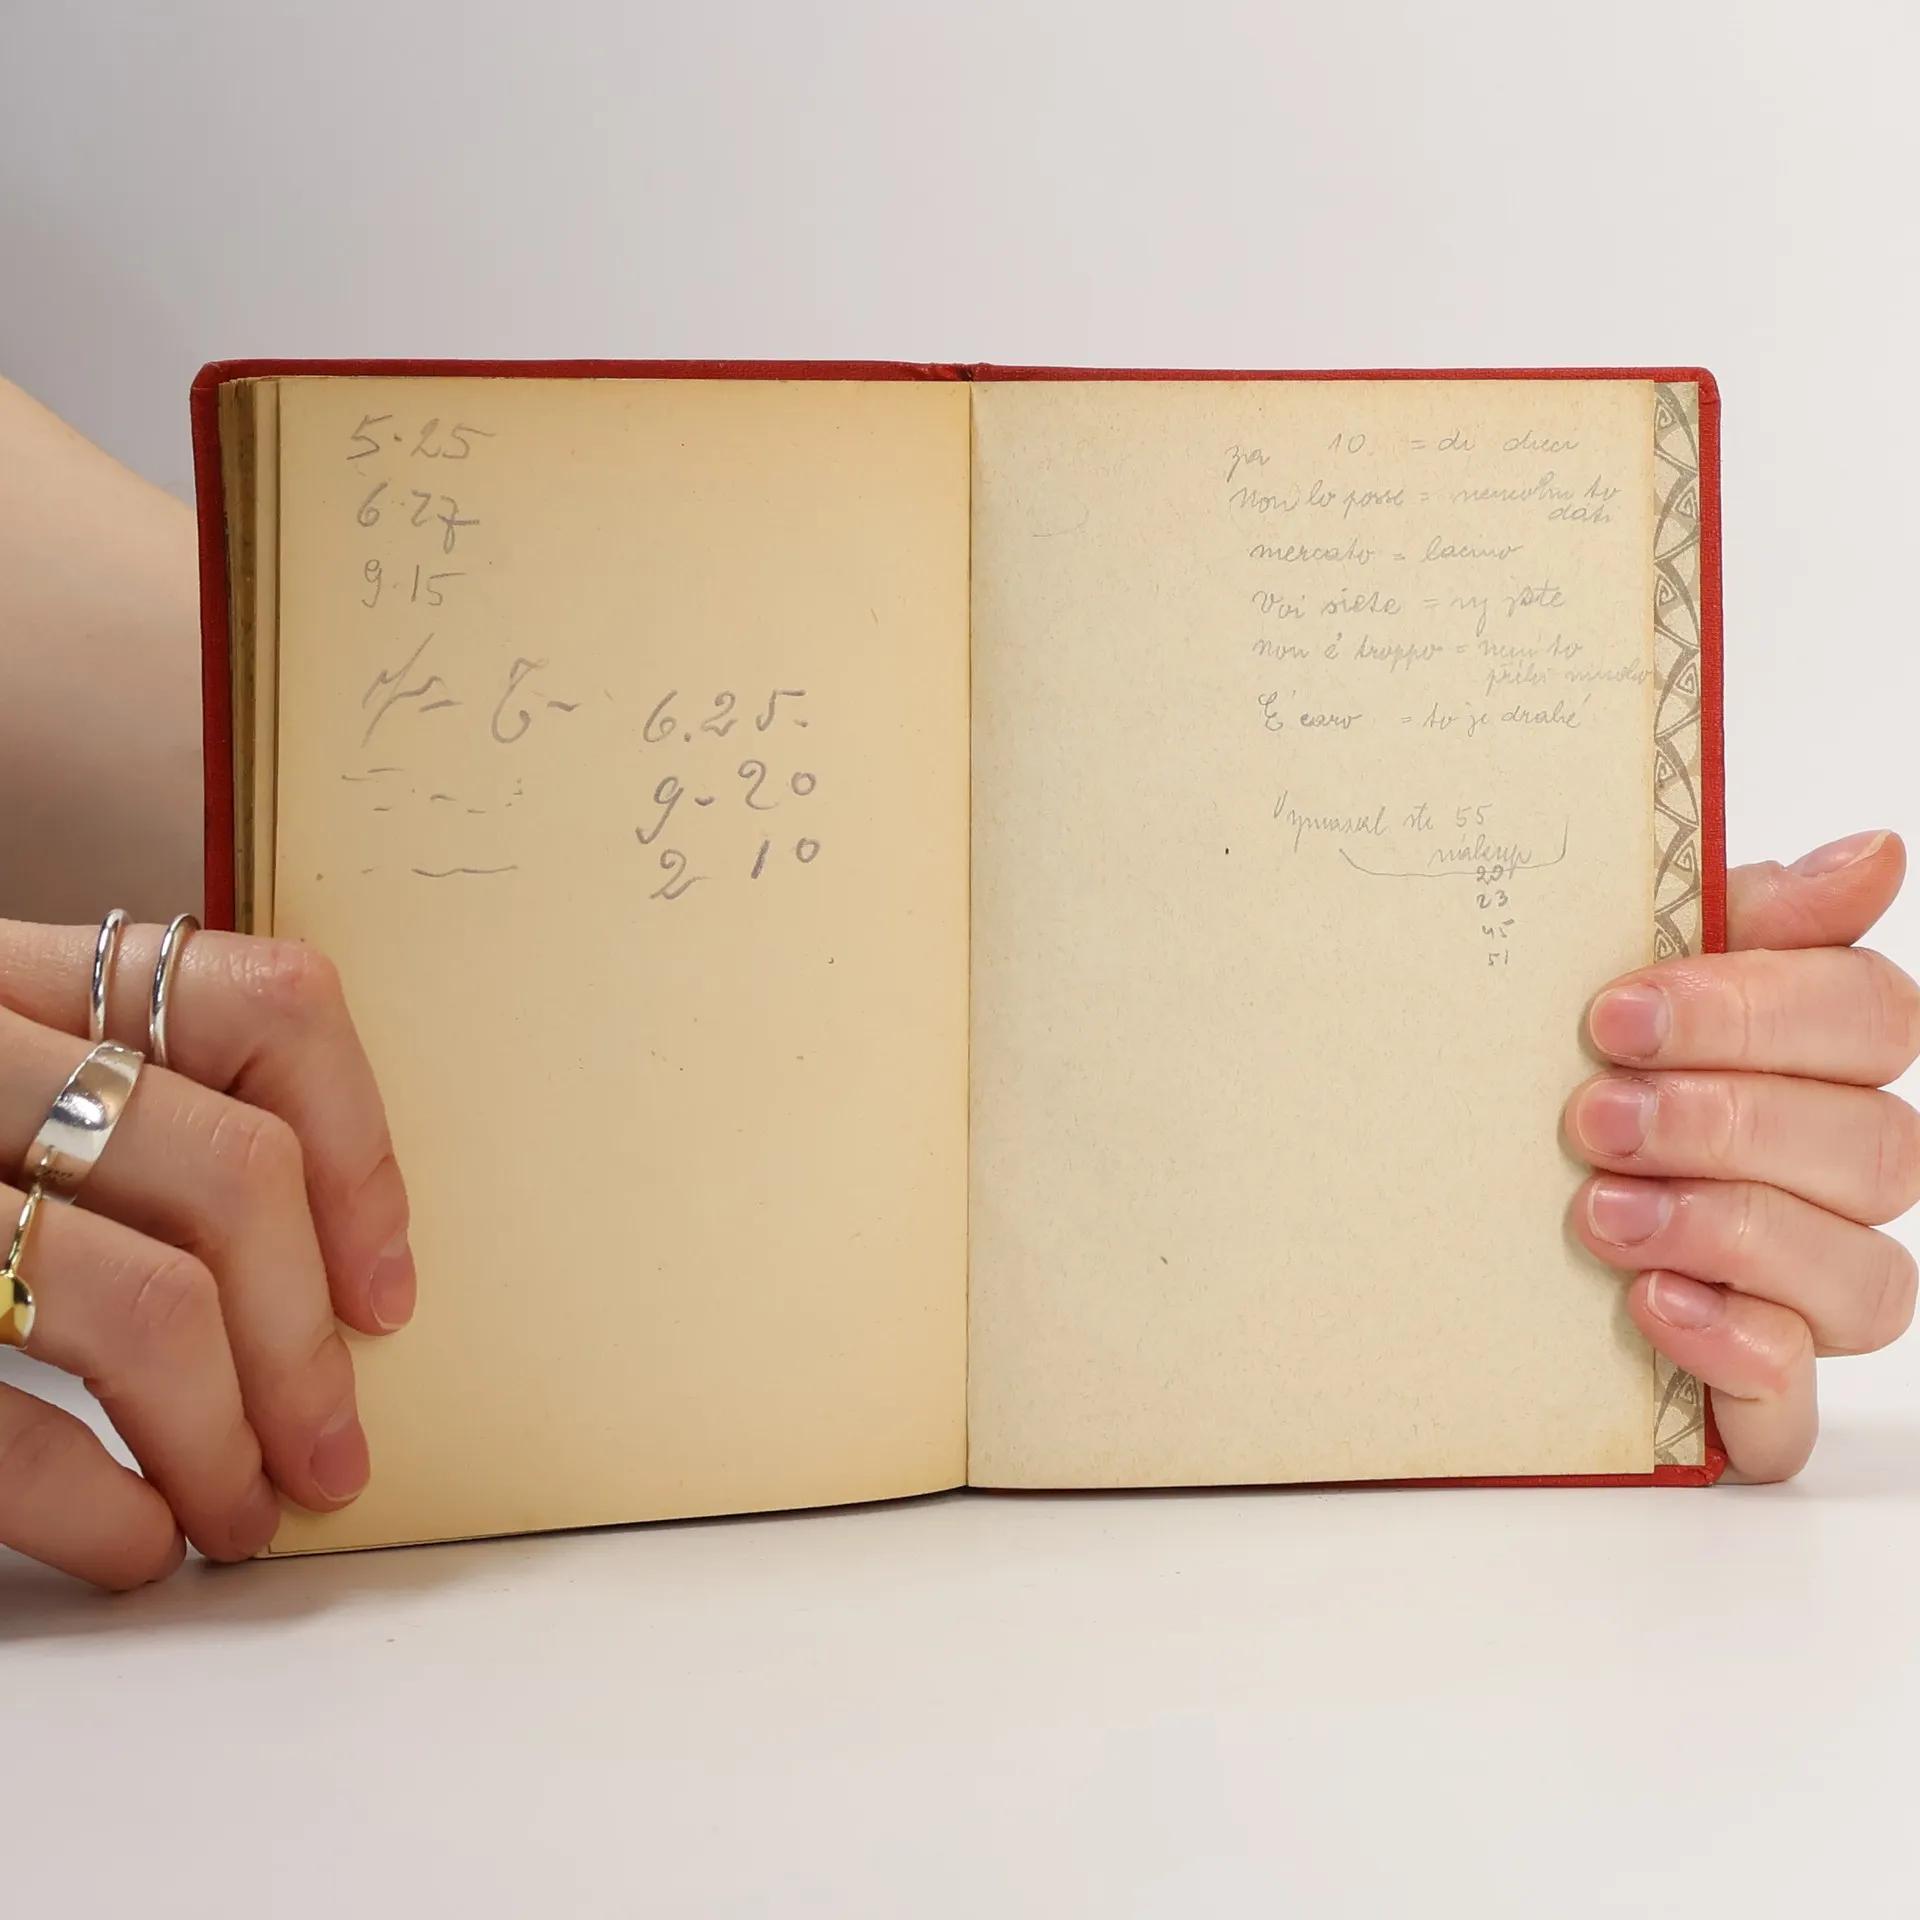 5.25
6.27
9.15
6.25.
9-20
2 10
za 10. = di dieci
Non lo posse = nemohu to
dati
mercato = lacino
Voi siete = vy jste
non é troppo = není to
příliš mnoho
É caro = to je drahé
55
nákup
23
45
51